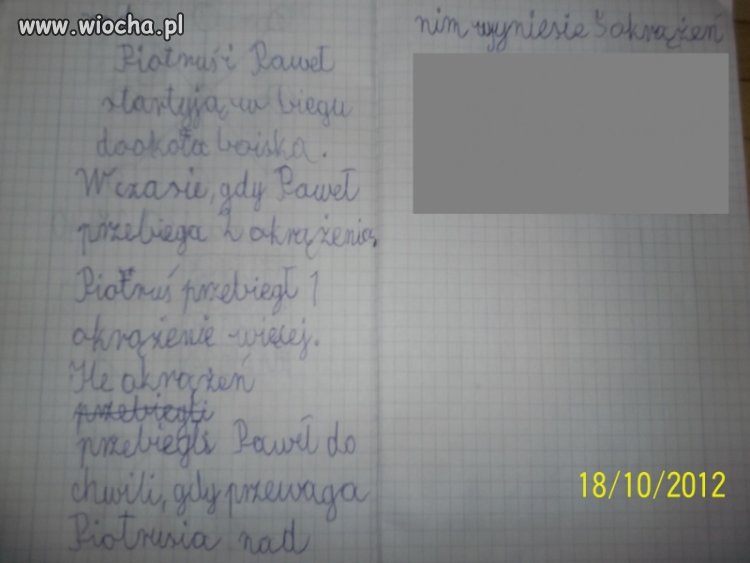 www.wiocha.pl
Piotruś i Paweł
startyją w biegu
dookoła boiska.
W czasie, gdy Paweł
przebiega 2 okrążenia,
Piotruś przebiegł 1
okrążenie więcej.
Ile okrążeń
przebiegli
przebiegli Paweł do
chwili, gdy przewaga
Piotrusia nad
nim wyniesie 5 okrążeń
18/10/2012